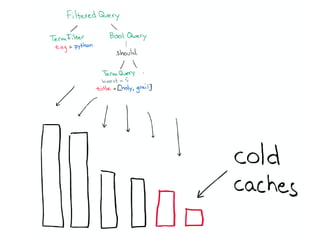 Filtered Query
TermFilter
tag = python
Bool Query
should
TermQuery
title = [holy, grail]
cold
caches